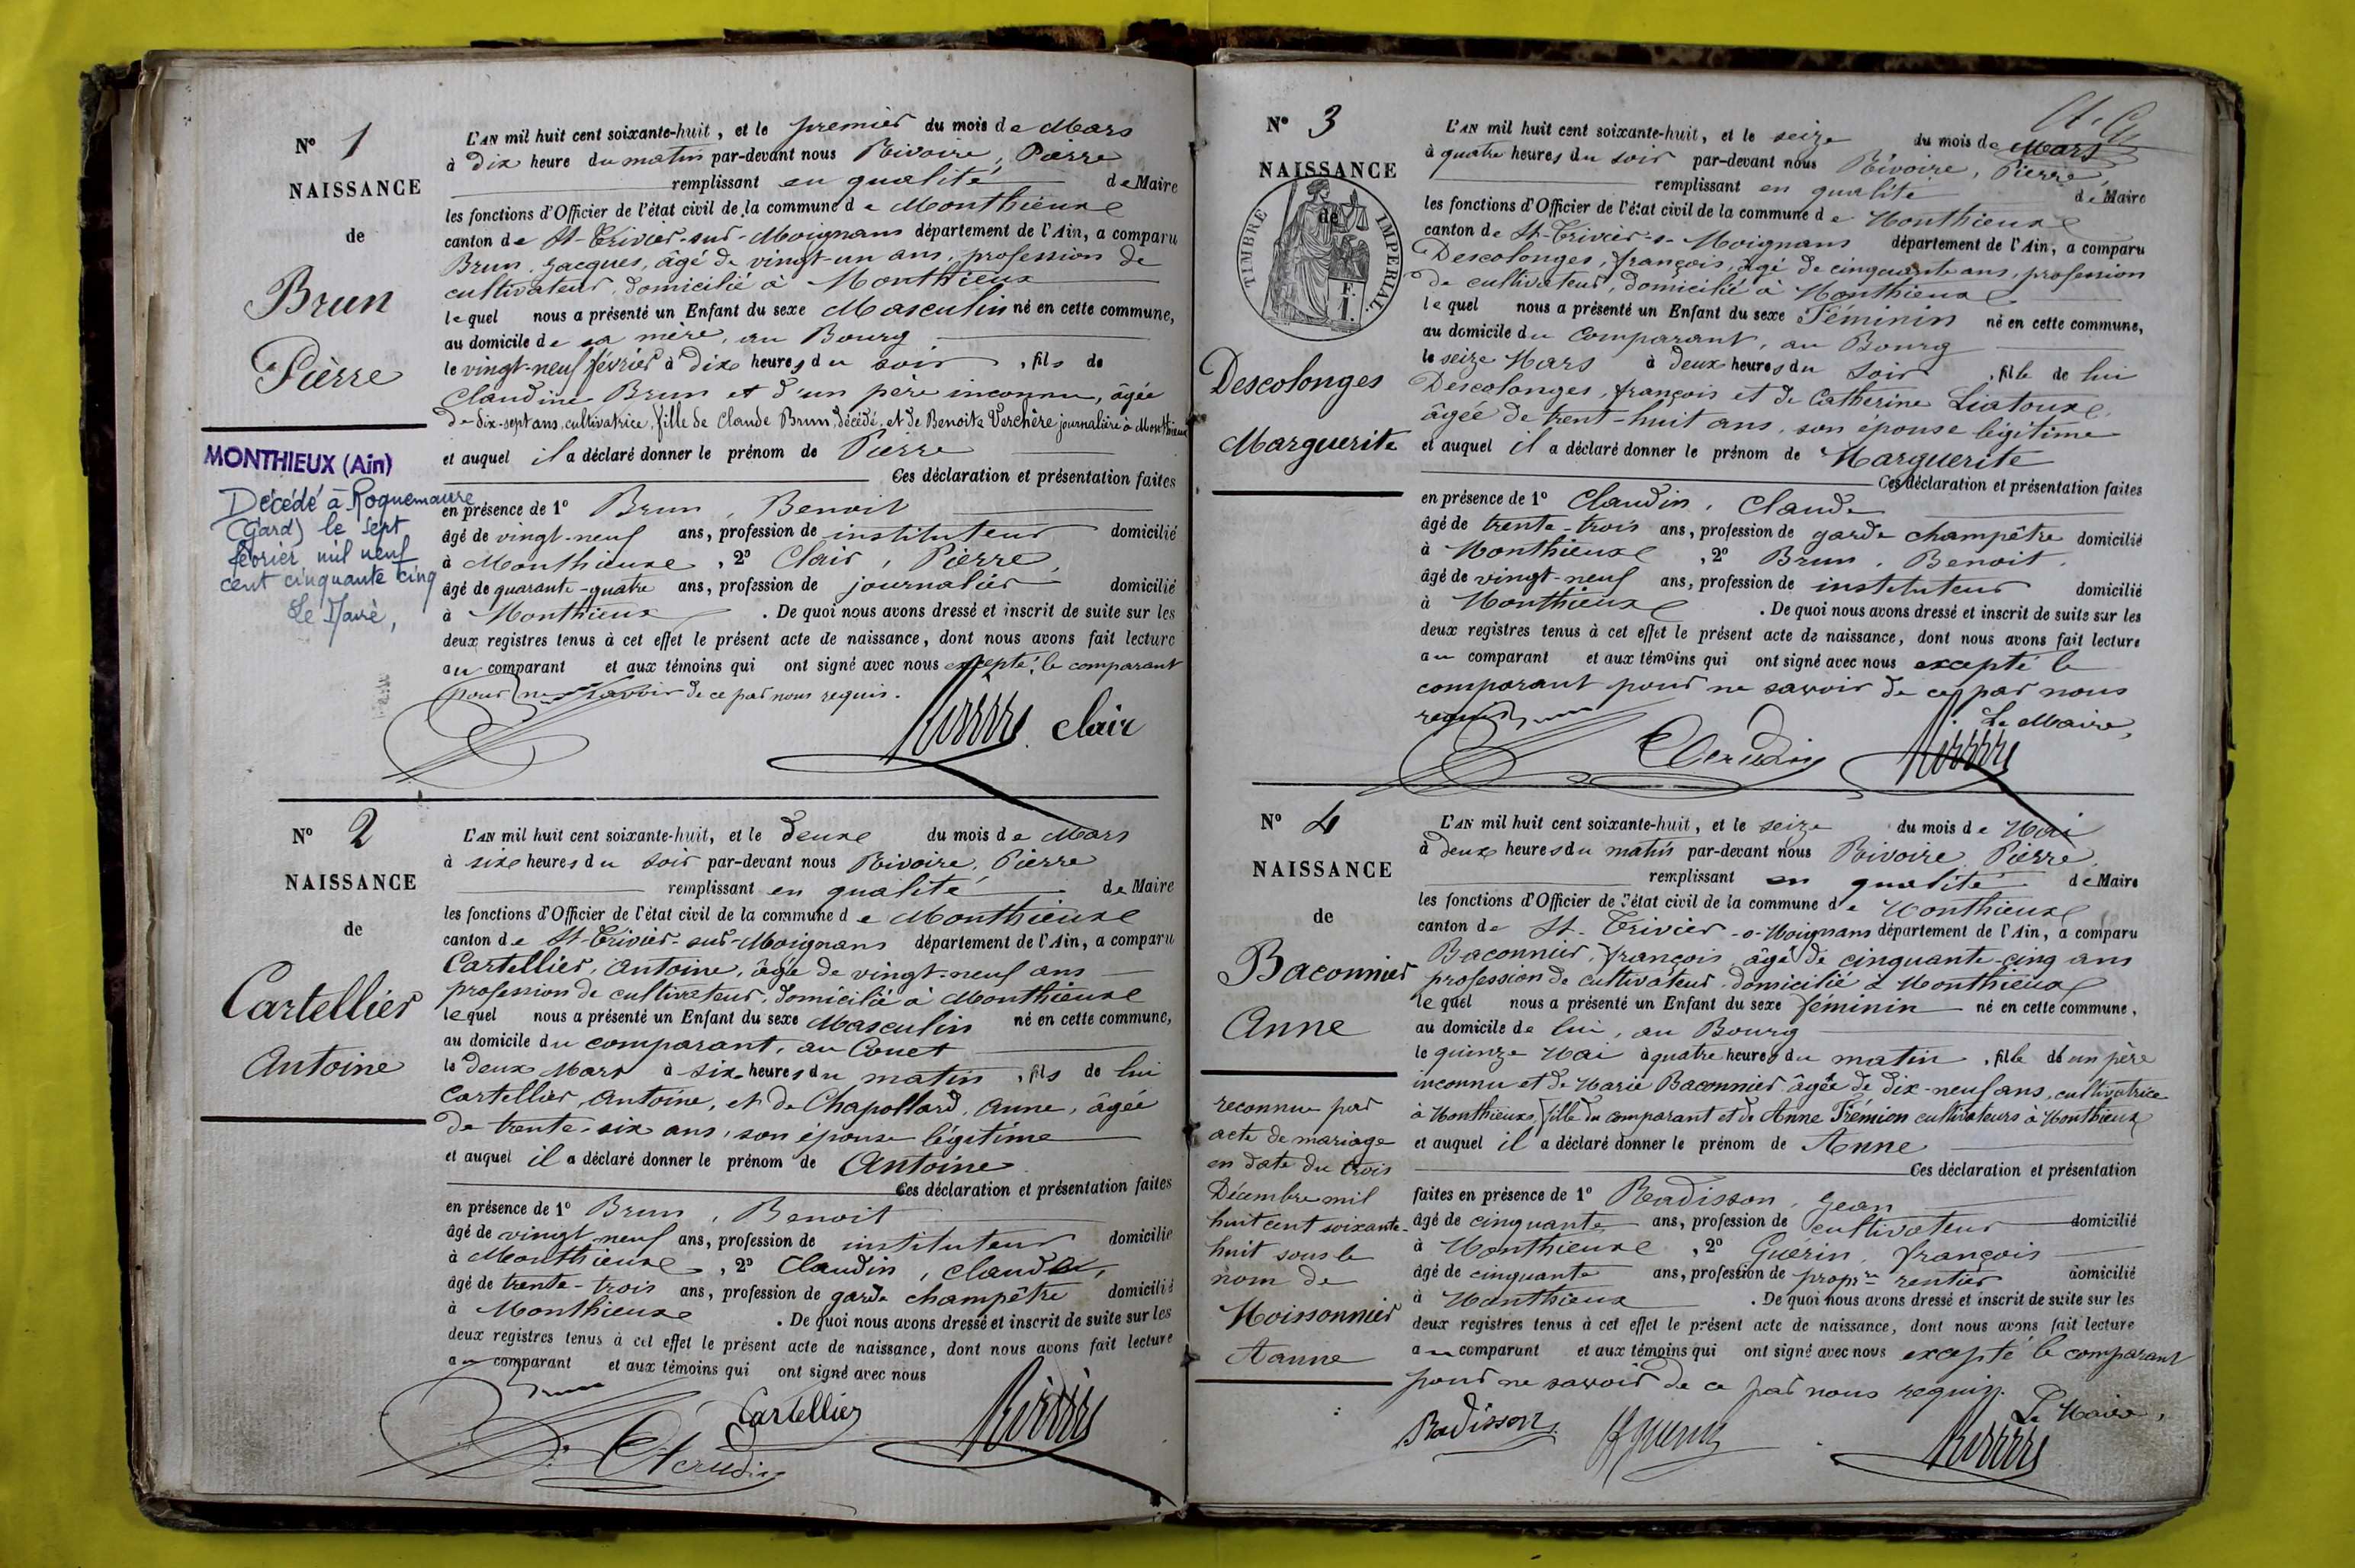 N° 1
NAISSANCE
de
Brun
Pierre
MONTHIEUX (Ain)
Décédé à Roquemaure
(Gard) le sept
février mil neuf
cent cinquante cinq
Le Maire,
L'AN mil huit cent soixante-huit, et le premier du mois de Mars
à dix heure du matin par-devant nous Rivoire, Pierre
remplissant en qualité de Maire
les fonctions d'Officier de l'état civil de la commune de Monthieux
canton de St-Trivier-sur-Moignans département de l'Ain, a comparu
Brun, Jacques, âgé de vingt-un ans, profession de
cultivateur, domicilié à Monthieux
lequel nous a présenté un Enfant du sexe Masculin né en cette commune,
au domicile de sa mère, au Bourg
le vingt-neuf février à dix heures du soir, fils de
Claudine Brun et d'un père inconnu, âgée
de dix-sept ans, cultivatrice, fille de Claude Brun, décédé, et de Benoite Verchère journalière à Monthieux
et auquel il a déclaré donner le prénom de Pierre
Ces déclaration et présentation faites
en présence de 1° Brun, Benoit
âgé de vingt-neuf ans, profession de instituteur domicilié
à Monthieux, 2° Clair, Pierre,
âgé de quarante-quatre ans, profession de journalier domicilié
à Monthieux. De quoi nous avons dressé et inscrit de suite sur les
deux registres tenus à cet effet le présent acte de naissance, dont nous avons fait lecture
au comparant et aux témoins qui ont signé avec nous excepté le comparant
pour ne savoir de ce par nous requis.
Rivoire Clair
N° 2
NAISSANCE
de
Cartellier
Antoine
L'AN mil huit cent soixante-huit, et le deux du mois de Mars
à six heures du soir par-devant nous Rivoire, Pierre
remplissant en qualité de Maire
les fonctions d'Officier de l'état civil de la commune de Monthieux
canton de St-Trivier-sur-Moignans département de l'Ain, a comparu
Cartellier, Antoine, âgé de vingt-neuf ans
profession de cultivateur, domicilié à Monthieux
lequel nous a présenté un Enfant du sexe Masculin né en cette commune,
au domicile du comparant, au Couet
le deux Mars à six heures du matin, fils de lui
Cartellier, Antoine, et de Chapollard, Anne, âgée
de trente-six ans, son épouse légitime
et auquel il a déclaré donner le prénom de Antoine
Ces déclaration et présentation faites
en présence de 1° Brun, Benoit
âgé de vingt neuf ans, profession de instituteur domicilié
à Monthieux, 2° Claudin, Claude,
âgé de trente-trois ans, profession de garde champêtre domicilié
à Monthieux. De quoi nous avons dressé et inscrit de suite sur les
deux registres tenus à cet effet le présent acte de naissance, dont nous avons fait lecture
au comparant et aux témoins qui ont signé avec nous
Brun
Cartellier Rivoire
Claudin
N° 3
NAISSANCE
de
TIMBRE IMPERIAL
F. 1.
Descolonges
Marguerite
L'AN mil huit cent soixante-huit, et le seize du mois de Mars
à quatre heures du soir par-devant nous Rivoire, Pierre,
remplissant en qualité de Maire
les fonctions d'Officier de l'état civil de la commune de Monthieux
canton de St-Trivier-s-Moignans département de l'Ain, a comparu
Descolonges, françois, âgé de cinquante ans, profession
de cultivateur, domicilié à Monthieux
lequel nous a présenté un Enfant du sexe Féminin né en cette commune,
au domicile du comparant, au Bourg
le seize Mars à deux heures du soir, fille de lui
Descolonges, françois et de Catherine Liatoux,
âgée de trent-huit ans, son épouse légitime
et auquel il a déclaré donner le prénom de Marguerite
Ces déclaration et présentation faites
en présence de 1° Claudin, Claude
âgé de trente-trois ans, profession de garde champêtre domicilié
à Monthieux, 2° Brun, Benoit,
âgé de vingt-neuf ans, profession de instituteur domicilié
à Monthieux. De quoi nous avons dressé et inscrit de suite sur les
deux registres tenus à cet effet le présent acte de naissance, dont nous avons fait lecture
au comparant et aux témoins qui ont signé avec nous excepté le
comparant pour ne savoir de ce par nous
requis Brun Le Maire,
Claudin Rivoire
N° 4
NAISSANCE
de
Baconnier
Anne
reconnue par
acte de mariage
en date du trois
Décembre mil
huit cent soixante-
huit sous le
nom de
Moissonnier
Anne
L'AN mil huit cent soixante-huit, et le seize du mois de Mai
à deux heures du matin par-devant nous Rivoire, Pierre,
remplissant en qualité de Maire
les fonctions d'Officier de l'état civil de la commune de Monthieux
canton de St-Trivier-s-Moignans département de l'Ain, a comparu
Baconnier, françois âgé de cinquante-cinq ans
profession de cultivateur domicilié à Monthieux
lequel nous a présenté un Enfant du sexe féminin né en cette commune,
au domicile de lui, au Bourg
le quinze Mai à quatre heures du matin, fille d'un père
inconnu et de Marie Baconnier âgée de dix-neuf ans, cultivatrice
à Monthieux, fille du comparant et de Anne Frémion cultivateurs à Monthieux
et auquel il a déclaré donner le prénom de Anne
Ces déclaration et présentation
faites en présence de 1° Radisson, Jean
âgé de cinquante ans, profession de cultivateur domicilié
à Monthieux, 2° Guérin, françois
âgé de cinquante ans, profession de propre rentier domicilié
à Monthieux. De quoi nous avons dressé et inscrit de suite sur les
deux registres tenus à cet effet le présent acte de naissance, dont nous avons fait lecture
au comparant et aux témoins qui ont signé avec nous excepté le comparant
pour ne savoir de ce par nous requis.
Le Maire,
Radisson Rivoire